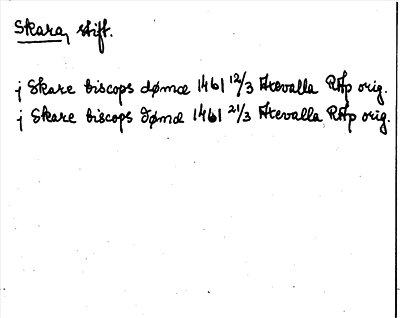 Skara, stift.
j Skare biscops dømæ 1461 12/3 Hrevalla RAp orig.
j Skare biscops dømæ 1461 21/3 Hrevalla RAp orig.